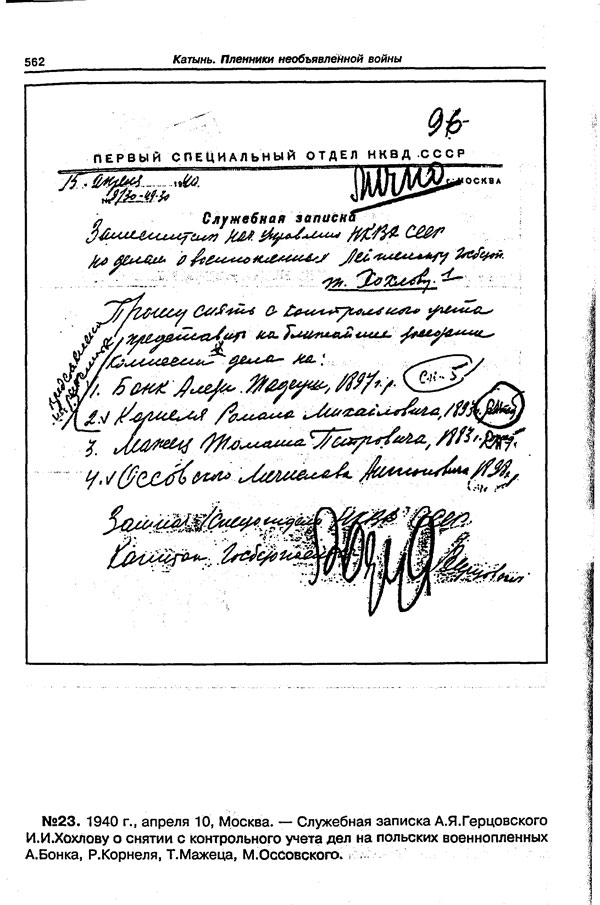 562
Катынь. Пленники необъявленной войны
96
ПЕРВЫЙ СПЕЦИАЛЬНЫЙ ОТДЕЛ НКВД СССР
15 апреля 1940.
г. МОСКВА
Лично
№ 9/30-49-30
Служебная записка
Заместителю нач. Управления НКВД СССР
по делам о военнопленных Лейтенанту Госбезоп.
т. Хохлову.
Прошу снять с контрольного учета
и представить на ближайшие заседание
Комиссии дела на:
1. Бонк Алекс. Тадеуш, 1897 г.р.
2. Корнеля Романа Михайловича, 1893
3. Мажец Томаша Петровича, 1883 г.
4. Оссовского Мечислава Антоновича 1898
Капитан Госбезопасности
№23. 1940 г., апреля 10, Москва. — Служебная записка А.Я.Герцовского
И.И.Хохлову о снятии с контрольного учета дел на польских военнопленных
А.Бонка, Р.Корнеля, Т.Мажеца, М.Оссовского.